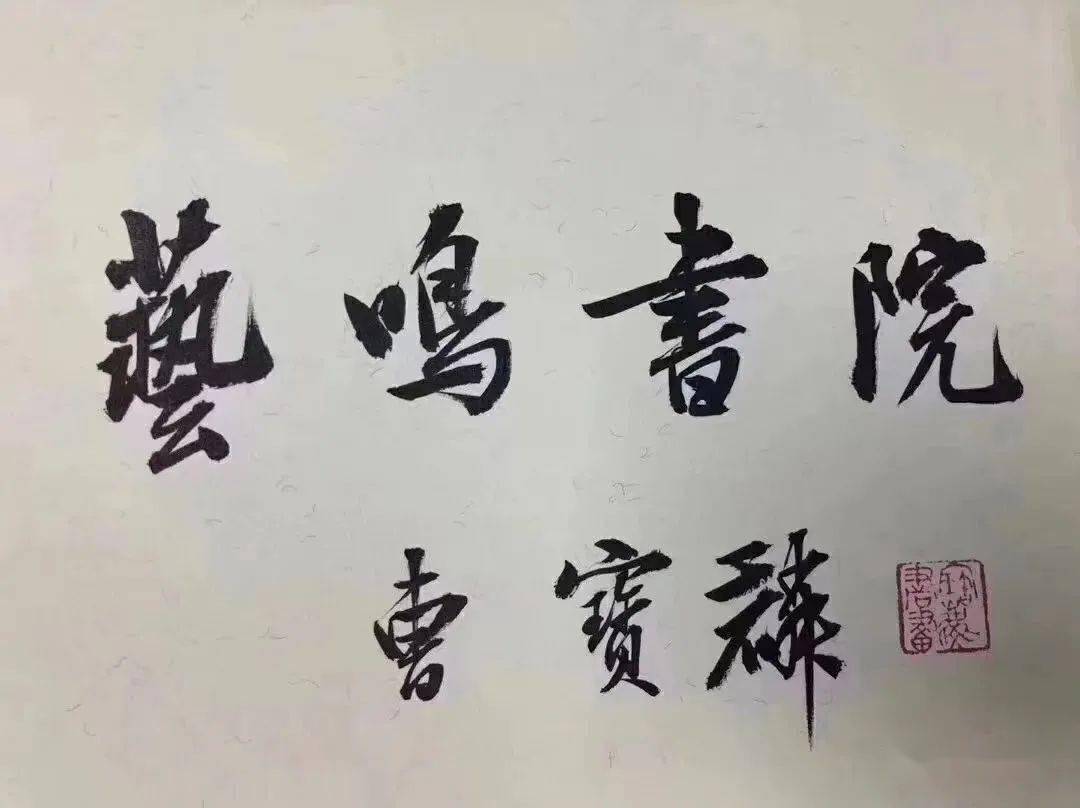 藝鳴書院
曹寶麟